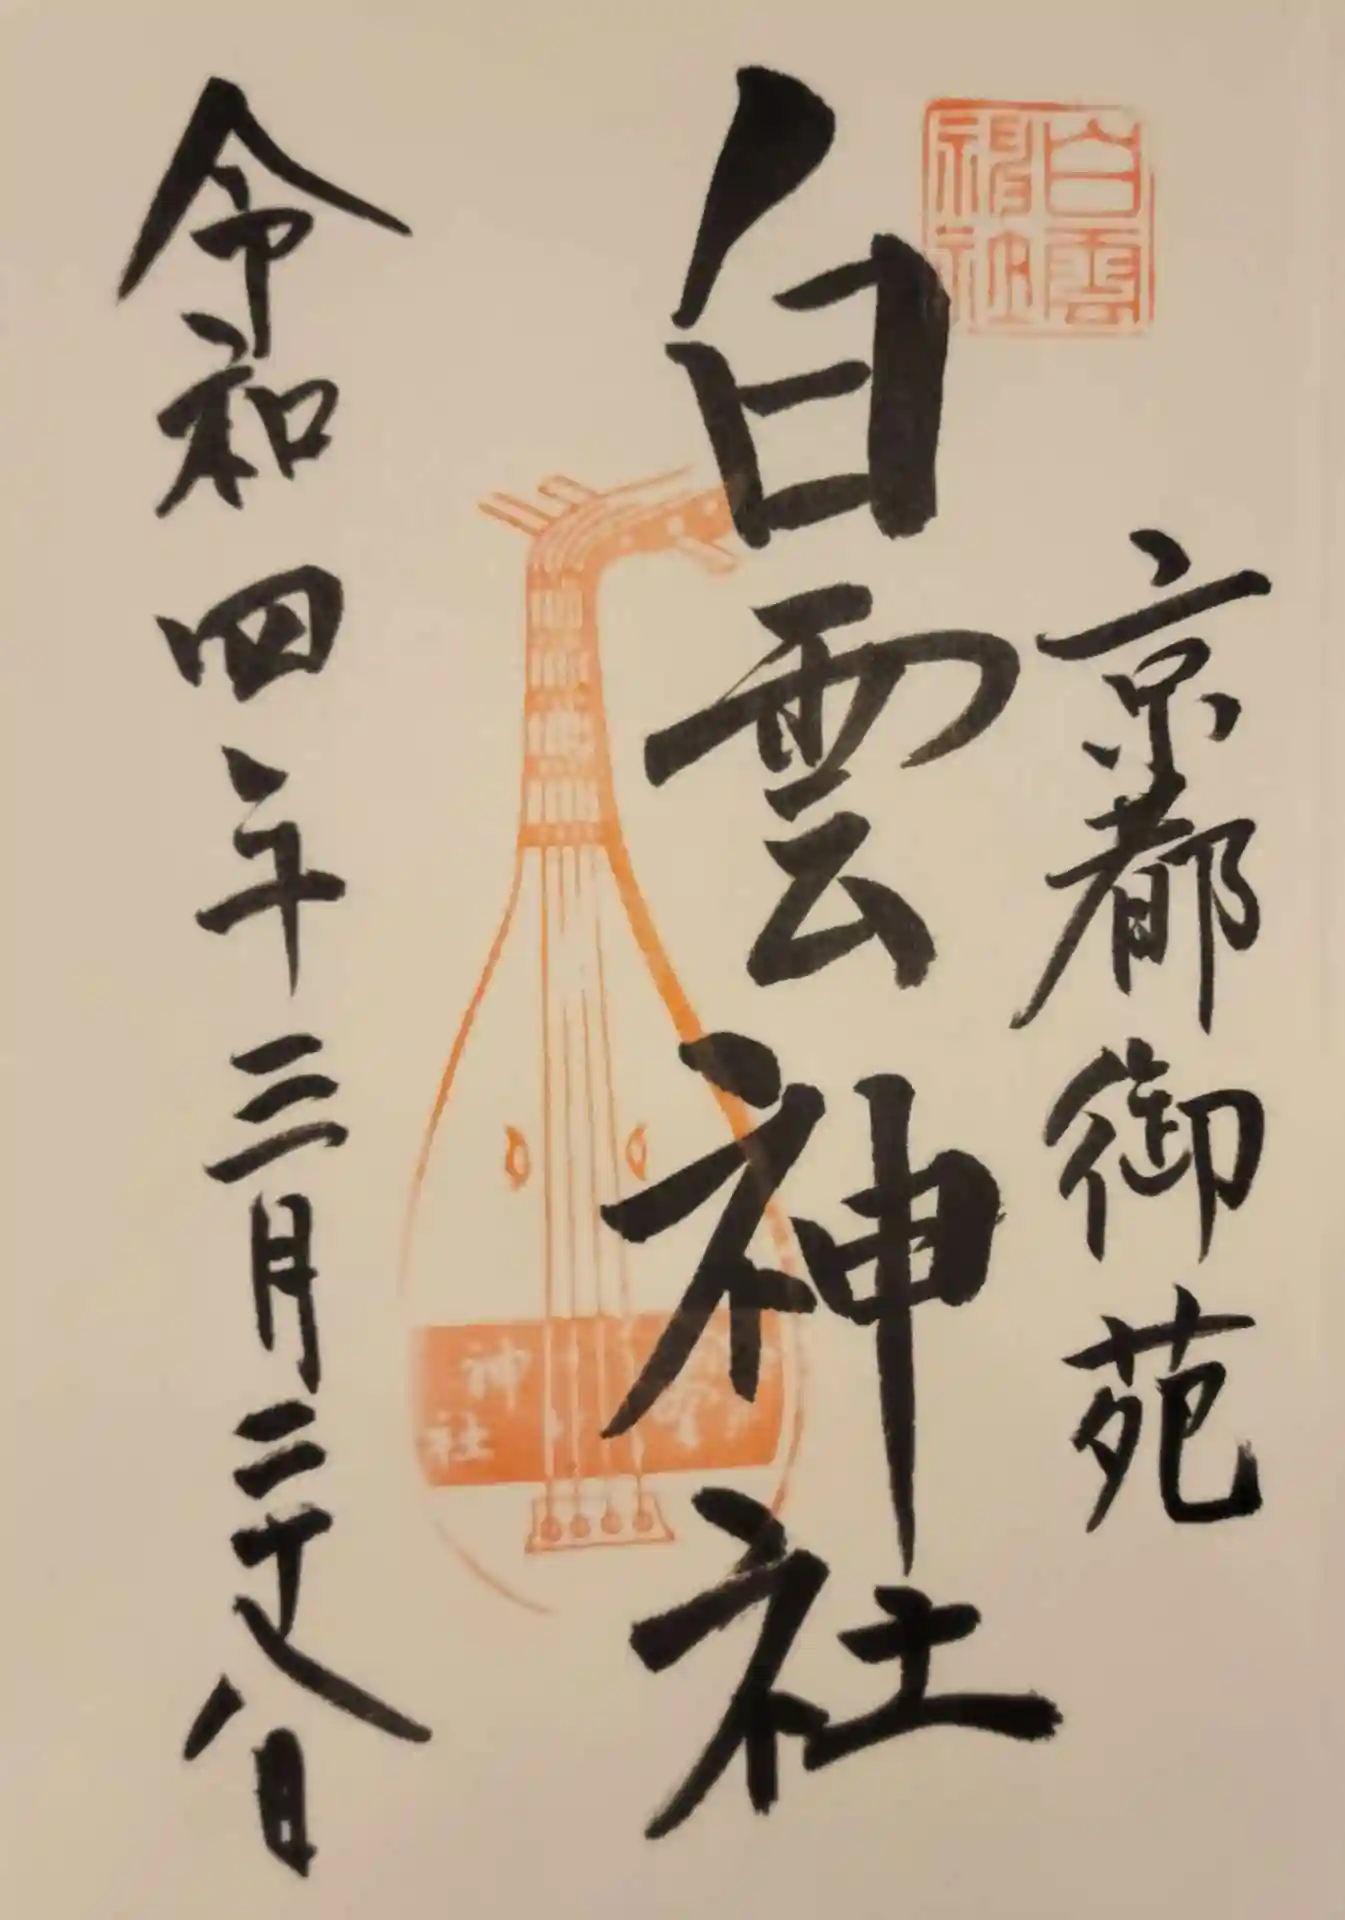 白雲
神社
京都御苑
白雲神社
令和四年三月二十八日
神
社